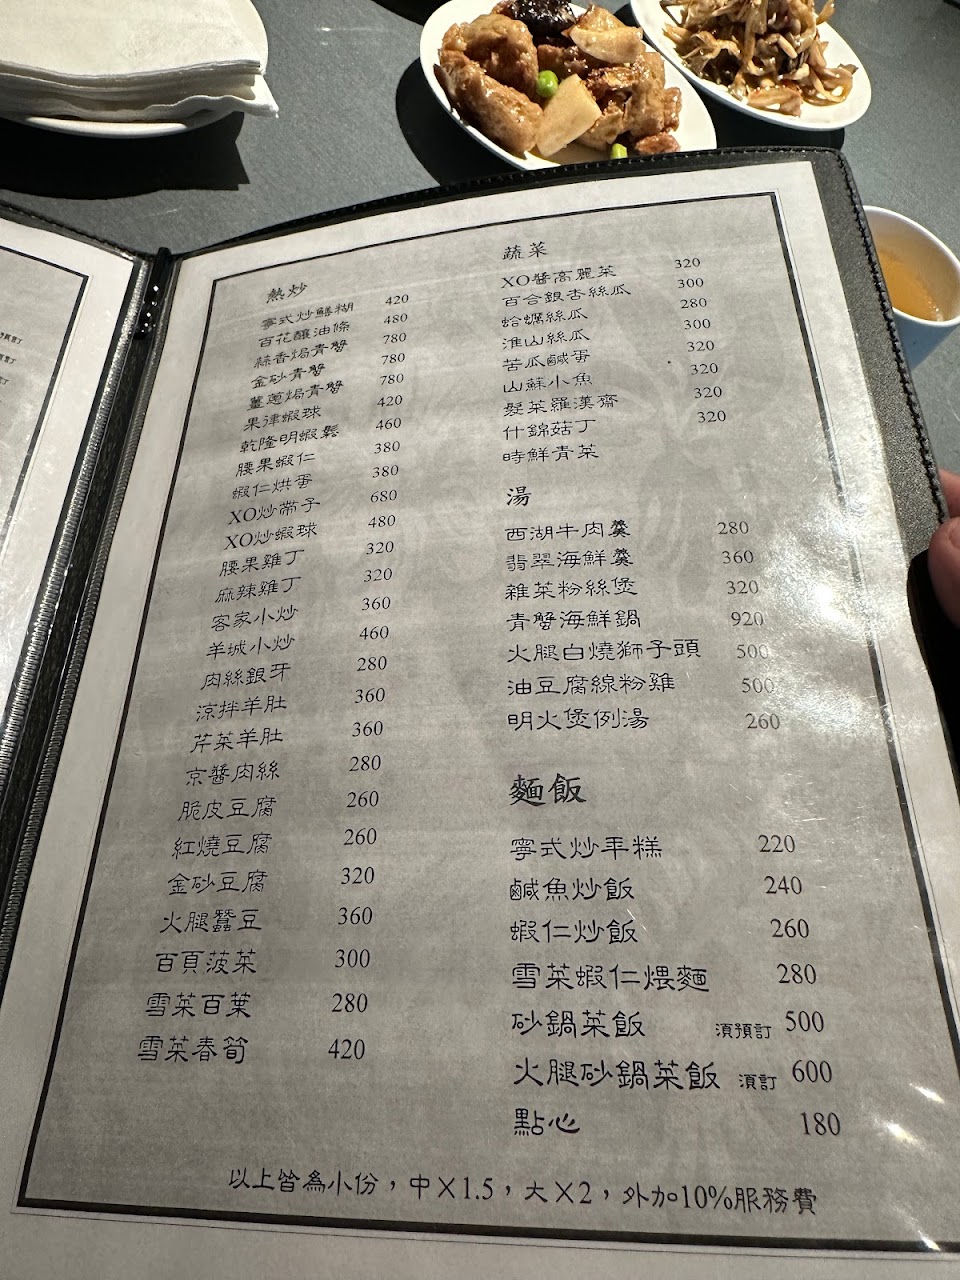 熱炒
寧式炒鱔糊 420
百花釀油條 480
蒜香焗青蟹 780
金砂青蟹 780
薑蔥焗青蟹 780
果律蝦球 420
乾隆明蝦鬆 460
腰果蝦仁 380
蝦仁烘蛋 380
XO炒帶子 680
XO炒蝦球 480
腰果雞丁 320
麻辣雞丁 320
客家小炒 360
羊城小炒 460
肉絲銀牙 280
涼拌羊肚 360
芹菜羊肚 360
京醬肉絲 280
脆皮豆腐 260
紅燒豆腐 260
金砂豆腐 320
火腿蠶豆 360
百頁菠菜 300
雪菜百葉 280
雪菜春筍 420
蔬菜
XO醬高麗菜 320
百合銀杏絲瓜 300
蛤蠣絲瓜 280
淮山絲瓜 300
苦瓜鹹蛋 320
山蘇小魚 320
髮菜羅漢齋 320
什錦菇丁 320
時鮮青菜
湯
西湖牛肉羹 280
翡翠海鮮羹 360
雜菜粉絲煲 320
青蟹海鮮鍋 920
火腿白燒獅子頭 500
油豆腐線粉雞 500
明火煲例湯 260
麵飯
寧式炒年糕 220
鹹魚炒飯 240
蝦仁炒飯 260
雪菜蝦仁煨麵 280
砂鍋菜飯 須預訂 500
火腿砂鍋菜飯 須訂 600
點心 180
以上皆為小份，中X1.5，大X2，外加10%服務費